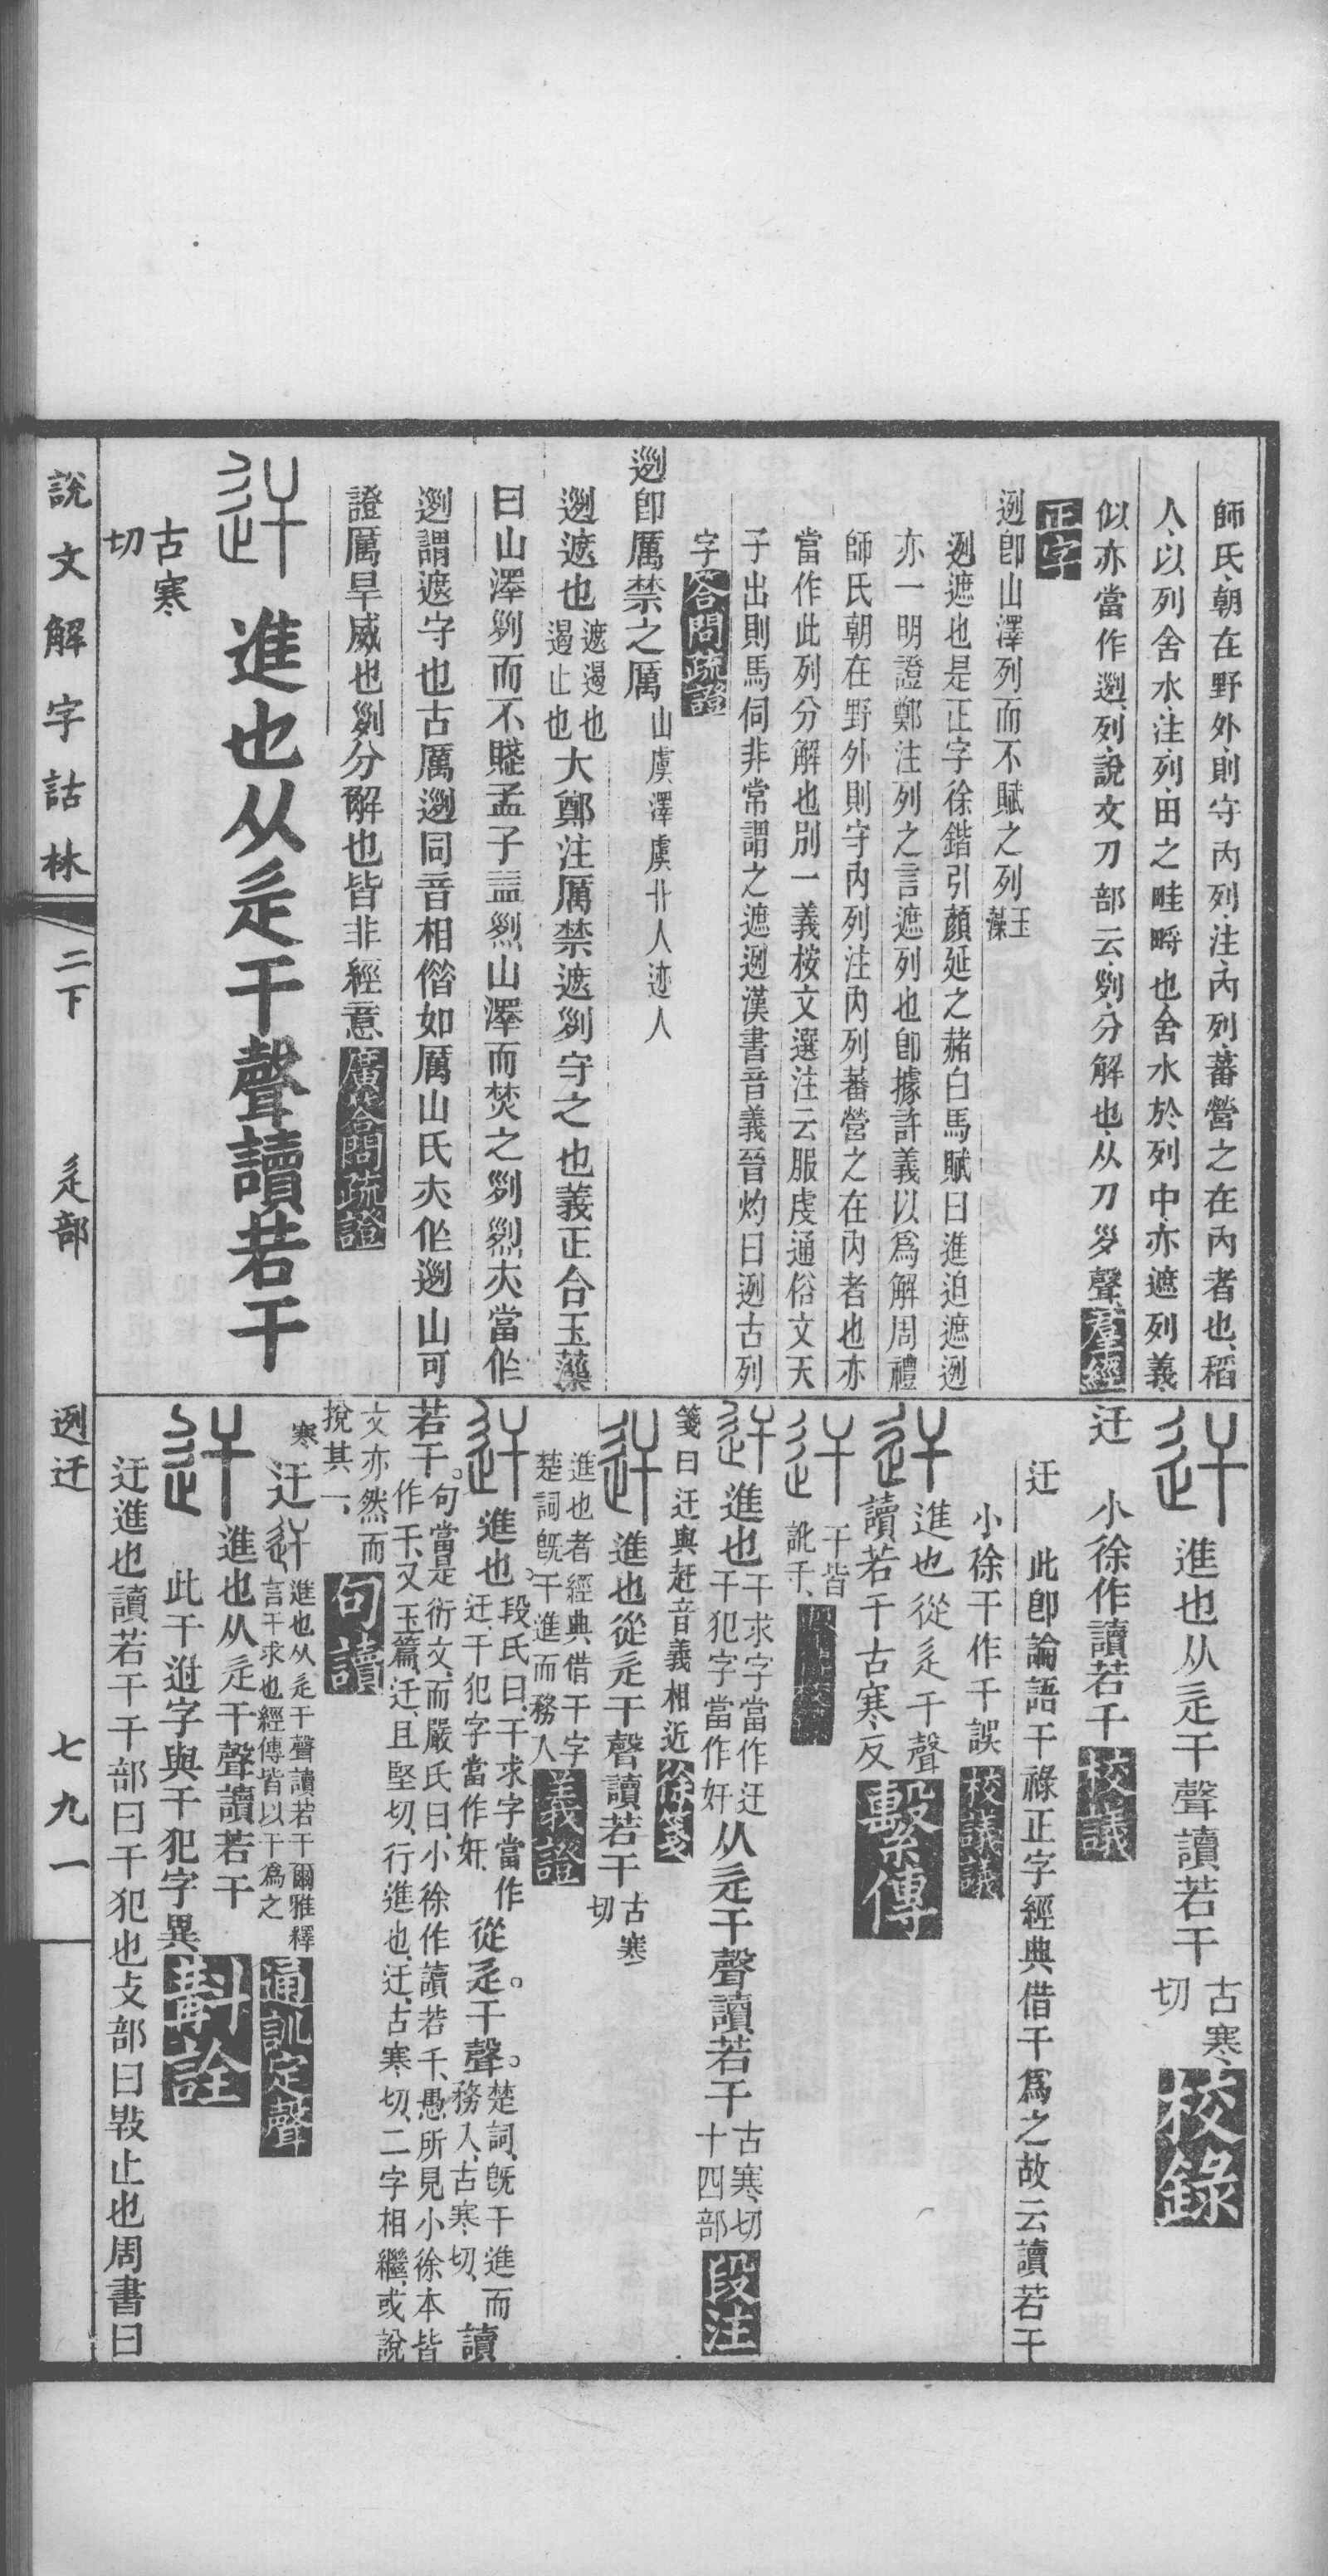 師氏、朝在野外、則守內列、注、內列、蕃營之在內者也、稻
人、以列舍水、注、列、田之畦㽟也、舍水於列中、亦遮列義、
似亦當作迾、列、說文刀部云、𠛱、分解也、从刀𡿪聲、羣經
正字
迾卽山澤列而不賦之列玉藻
迾遮也是正字徐鍇引顏延之赭白馬賦曰進迫遮迾
亦一明證鄭注列之言遮列也卽據許義以爲解周禮
師氏朝在野外則守內列注內列蕃營之在內者也亦
當作此列分解也別一義桉文選注云服虔通俗文天
子出則馬伺非常謂之遮迾漢書音義晉灼曰迾古列
字答問疏證
迾卽厲禁之厲山虞澤虞卝人迹人
迾遮也遮遏也遏止也大鄭注厲禁遮𠛱守之也義正合玉藻
曰山澤𠛱而不賦孟子益烈山澤而焚之𠛱烈亦當作
迾謂遮守也古厲迾同音相借如厲山氏亦作迾山可
證厲旱威也𠛱分解也皆非經意廣答問疏證
迀 進也从辵干聲讀若干
古寒切
迀 進也从辵干聲讀若干古寒切校錄
迀 小徐作讀若干校議
迀 此卽論語干祿正字經典借干爲之故云讀若干
小徐干作干誤校議議
迀 進也從辵干聲讀若干古寒反繫傳
迀 干皆訛千、
迀 進也干求字當作迀干犯字當作奸从辵干聲讀若干古寒切十四部段注
箋曰迀與赶音義相近徐箋
迀 進也從辵干聲讀若干古寒切
進也者經典借干字楚詞旣干進而務入義證
迀 進也。段氏曰、干求字當作迀、干犯字當作奸、從辵。干聲。楚詞、旣干進而務入、古寒切、讀
若干。句當是衍文、而嚴氏曰、小徐作讀若干、愚所見小徐本皆作干、又玉篇、迀、且堅切、行進也、迀、古寒切、二字相繼、或說
文亦然、而挩其一、句讀
寒迀 迀進也从辵干聲讀若干爾雅釋言干求也經傳皆以干爲之通訓定聲
迀 進也从辵干聲讀若干
此干迀字與干犯字異斠詮
迀進也讀若干干部曰干犯也攴部曰㪋止也周書曰
說文解字詁林 二下 辵部 迾迀 七九一